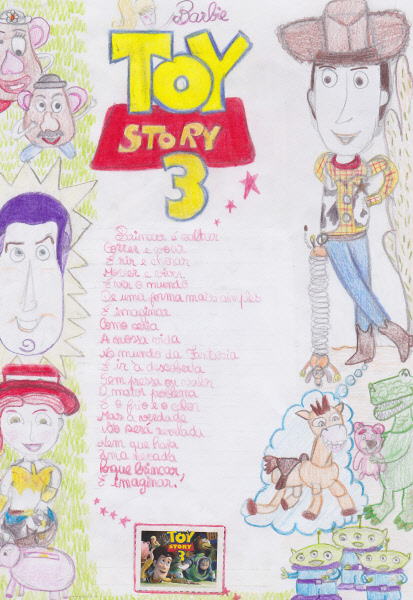 Barbie
TOY
STORY
3
Brincar é saltar
Correr e voar
É rir e chorar
Mover e viver
É ver o mundo
De uma forma mais simples
É imaginar
Como seria
A nossa vida
No mundo da Fantasia
É ir à descoberta
Sem pressa ou
O maior problema
É o frio e o calor
Mas a verdade
Não será revelada
Nem que haja
Uma
Porque brincar
É Imaginar!
TOY
STORY
3